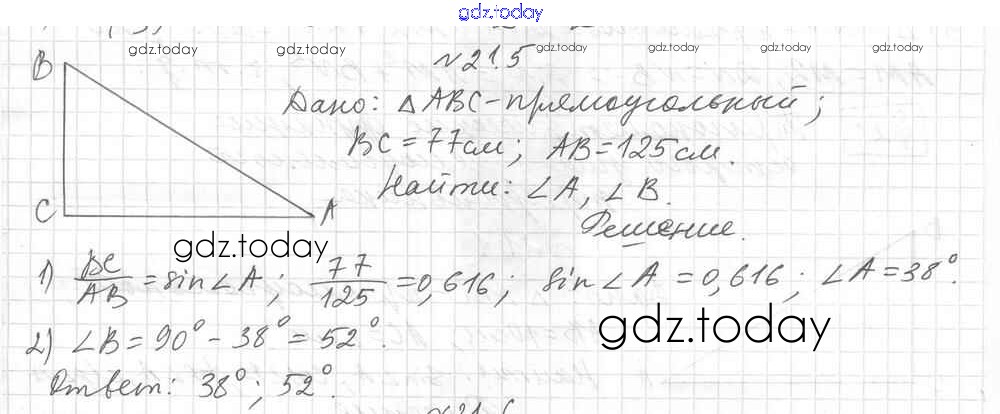 gdz.today
gdz.today gdz.today №21.5 gdz.today gdz.today gdz.today gdz.today
B
Дано: △ABC - прямоугольный;
BC = 77см; AB = 125 см.
Найти: ∠A, ∠B.
C A
Решение.
gdz.today
1) BC/AB = sin∠A; 77/125 = 0,616; sin∠A = 0,616; ∠A = 38°.
gdz.today
2) ∠B = 90° - 38° = 52°.
Ответ: 38°; 52°.